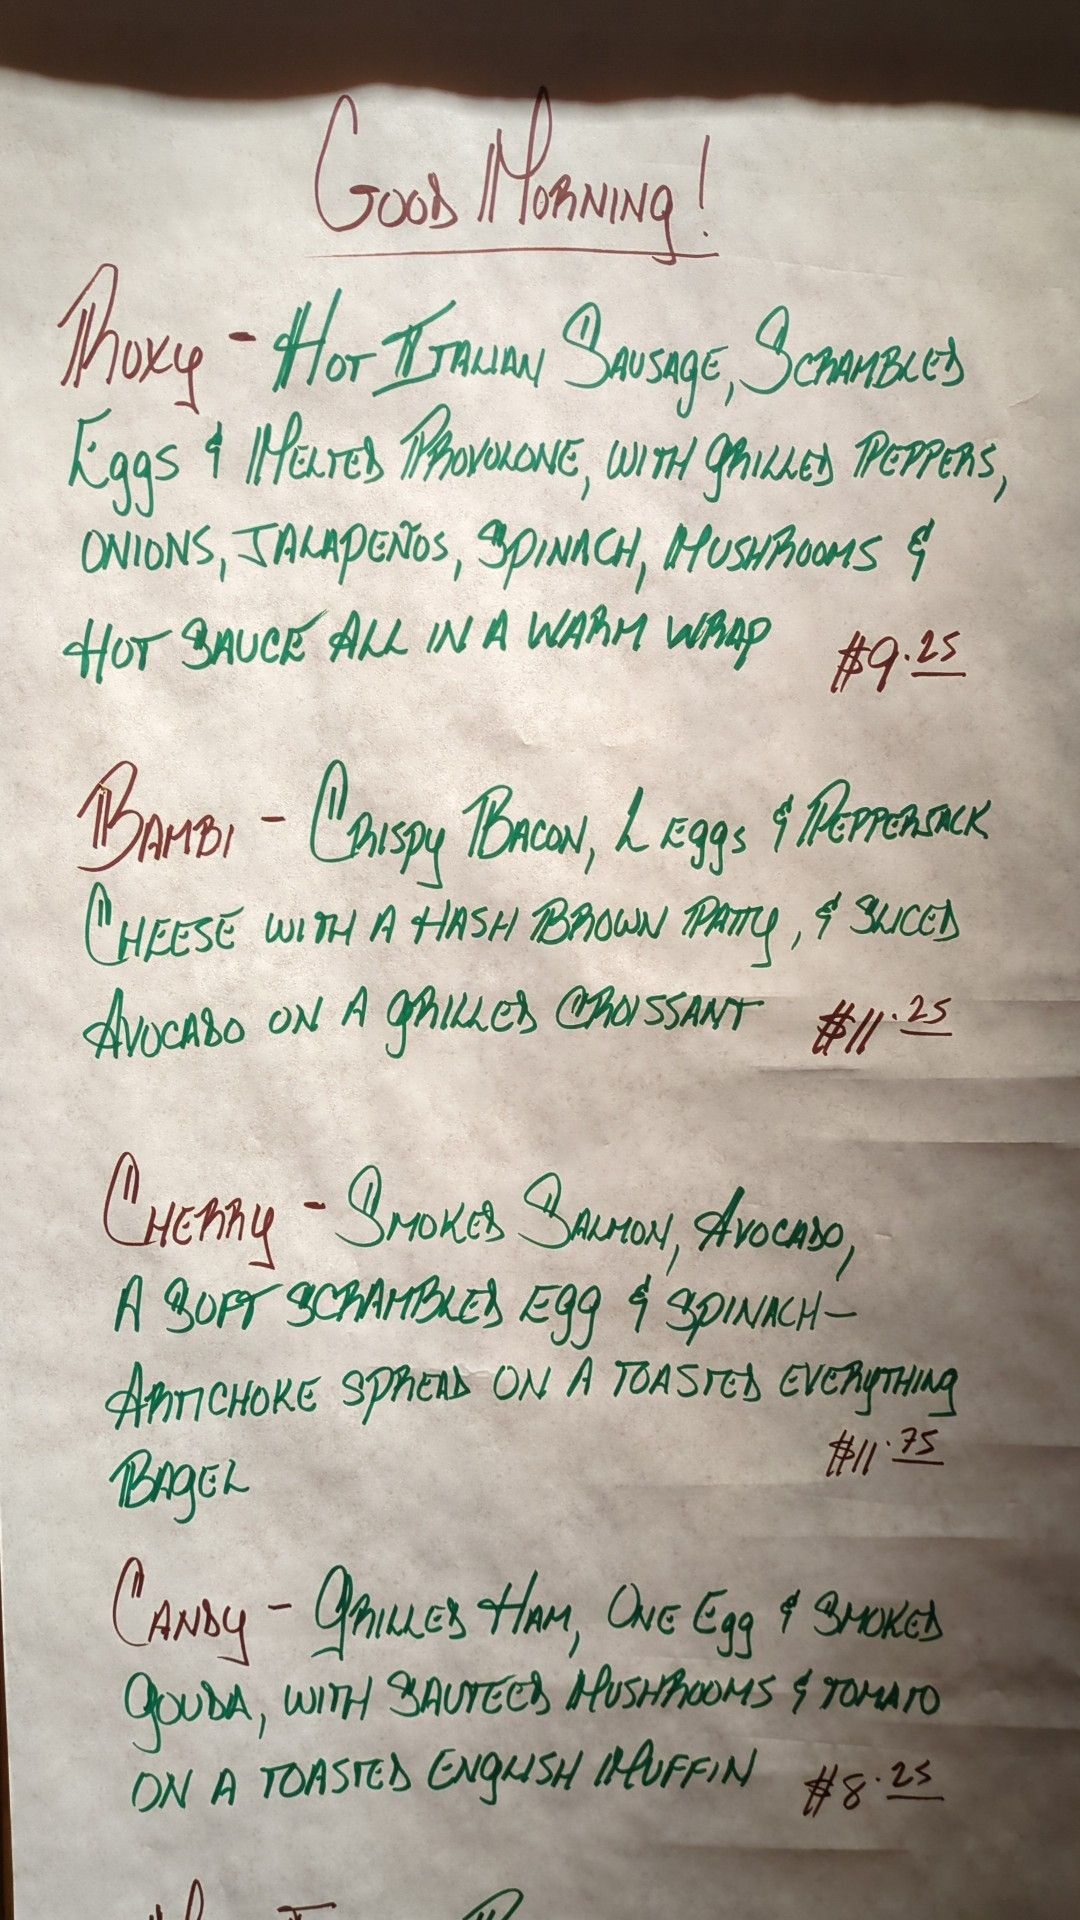 Good Morning!
Roxy - Hot Italian Sausage, Scrambled
Eggs & Melted Provolone, with grilled Peppers,
onions, Jalapeños, Spinach, Mushrooms &
Hot Sauce all in a warm wrap $9.25
Bambi - Crispy Bacon, 2 eggs & Pepperjack
Cheese with a hash brown patty, & sliced
Avocado on a grilled croissant $11.25
Cherry - Smoked Salmon, Avocado,
a soft scrambled egg & spinach-
artichoke spread on a toasted everything
Bagel $11.75
Candy - Grilled Ham, One Egg & smoked
gouda, with sauteed mushrooms & tomato
on a toasted English Muffin $8.25